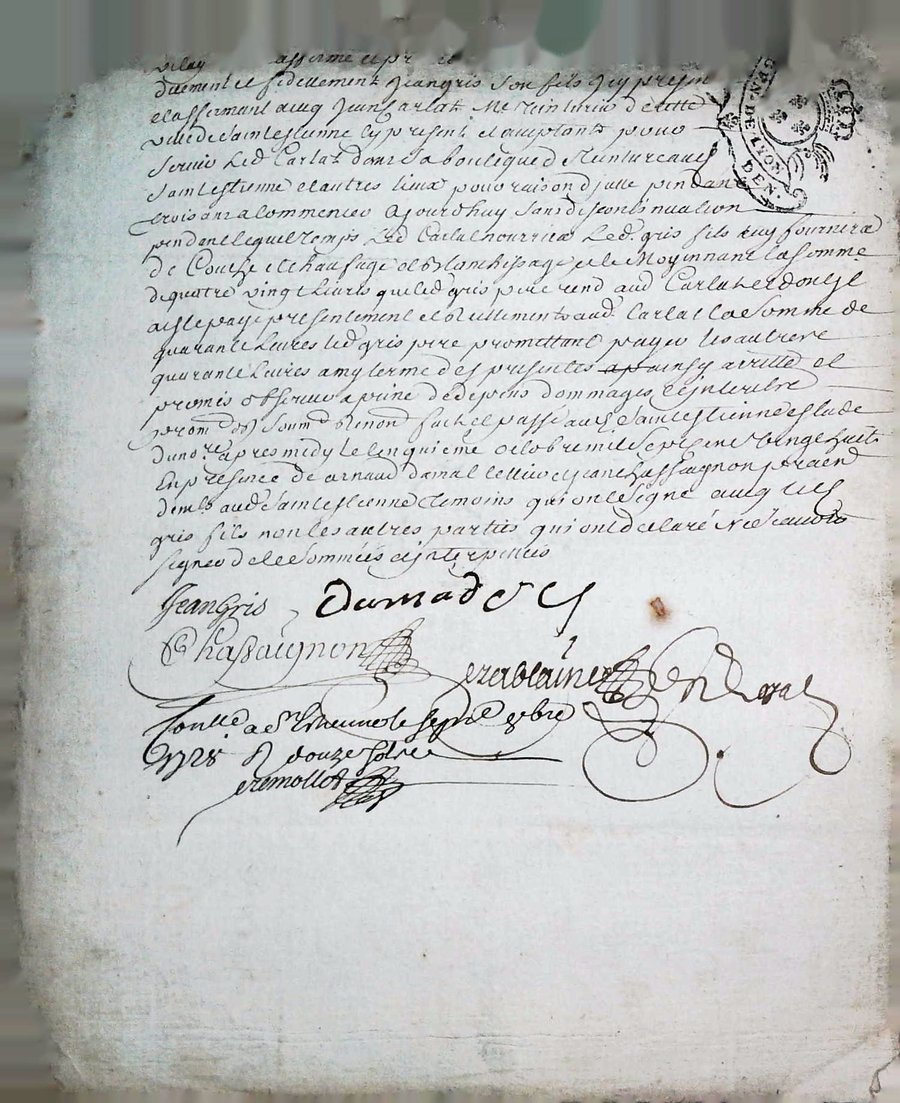 GEN. DE LYON
DEN.
afferme et pr
duement et fidellement Jean gris son fils Icy presen
et affermant aucq Jean Carlat Me teinturier de cette
ville de Saint estienne Icy present et acceptant pour
servir Led Carlat dans sa boutique de teintures aud
Saint estienne et autres lieux pour raison d pendant
trois ans a commencer ajourdhuy sans discontinuation
pendent lequel temps Led Carlat nourrira Led. gris fils luy fournira
de Couche et chaufage et blanchissage et le Moyennant la somme
de quatre vingt livres que led gris pere aud Carlat
paye presentement et reellement aud. Carlat la Somme de
quarante Livres led gris pere promettant payer les autres
quarante Livres a my terme des presentes ainsy arrette et
promis observer a peine de depens dommages et interests
soum renon fait et passé aud Saint estienne estude
du nore apres midy le cinquiéme octobre mil sept cens vingt huit
En presence de arnaud damadel et Jean Chassaignon
aud Saint estienne temoins qui ont signé aucq led
gris fils non les autres parties qui ont declaré ne scavoir
signer de ce sommées et interpellées
Jean gris
Chassaignon
Conllé a St Etienne le sept 8bre
1728 R douze sols